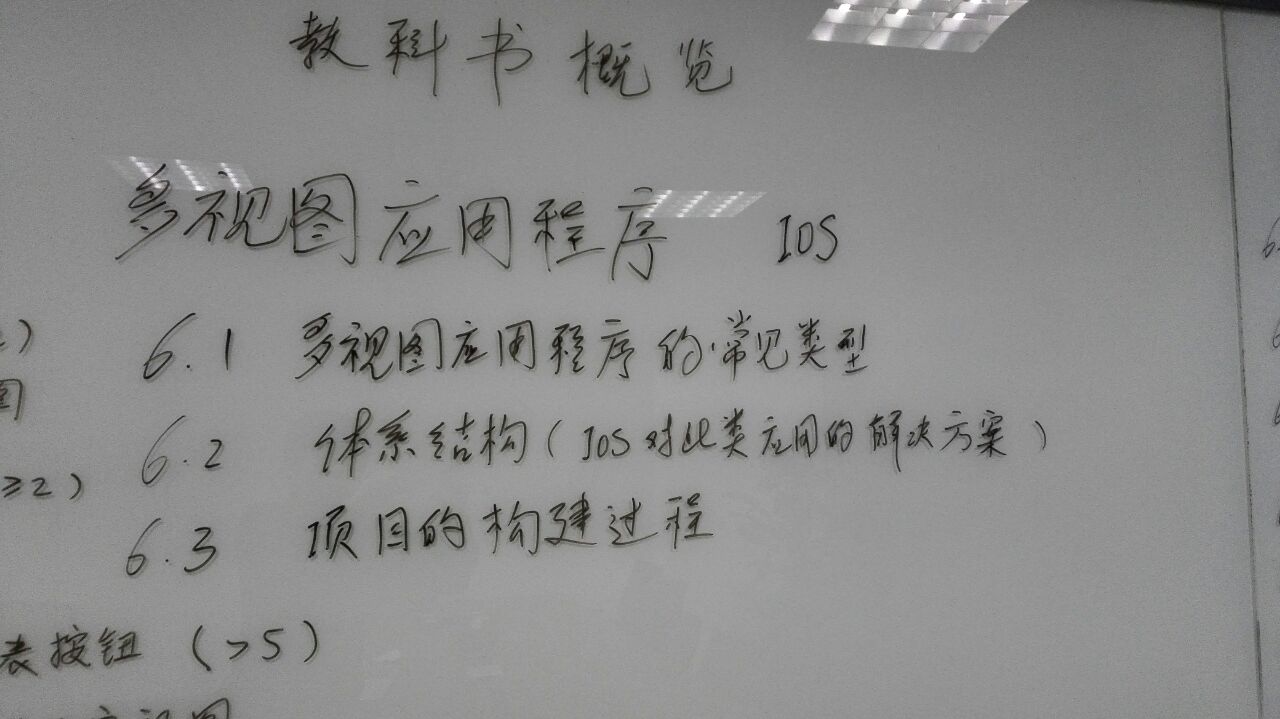 教科书概览
多视图应用程序 IOS
6.1 多视图应用程序的常见类型
6.2 体系结构(IOS对此类应用的解决方案)
6.3 项目的构建过程
图
≥2)
表按钮 (>5)
视图